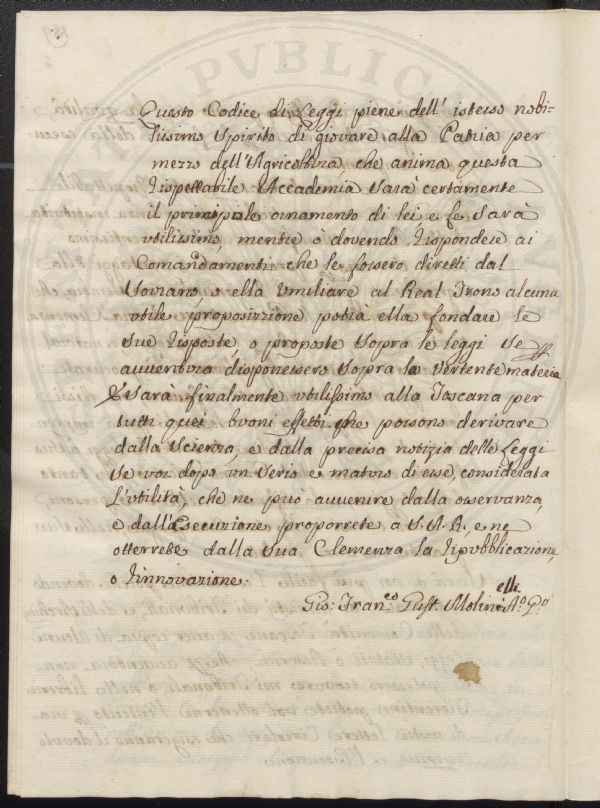 Questo Codice di Leggi piene dell' istesso nobi-
lissimo spirito di giovare alla Patria per
mezzo dell'Agricoltura che anima questa
rispettabile Accademia sarà certamente
il principale ornamento di lei e le sarà
utilissimo, mentre ò dovendo rispondere ai
Comandamenti che le fossero diretti dal
Sovrano, o ella umiliare al Real Trono alcuna
utile proposizzione potrà ella fondare le
sue risposte, o proposte sopra le leggi se
avventura disponessero sopra la vertente materia
E sarà finalmente utilissimo alla Toscana per
tutti quei buoni effetti che possono derivare
dalla scienza, e dalla precisa notizia delle Leggi
se voi dopo un serio e maturo di esse, considerata
l'utilità, che ne può avvenire dalla osservanza,
e dall'Esecuzione proporrete a S.A.R., e ne
otterrete dalla sua Clemenza la ripubblicazione,
o rinnovazione.
Gio: Franco Gust. Molinelli
PVBLICA